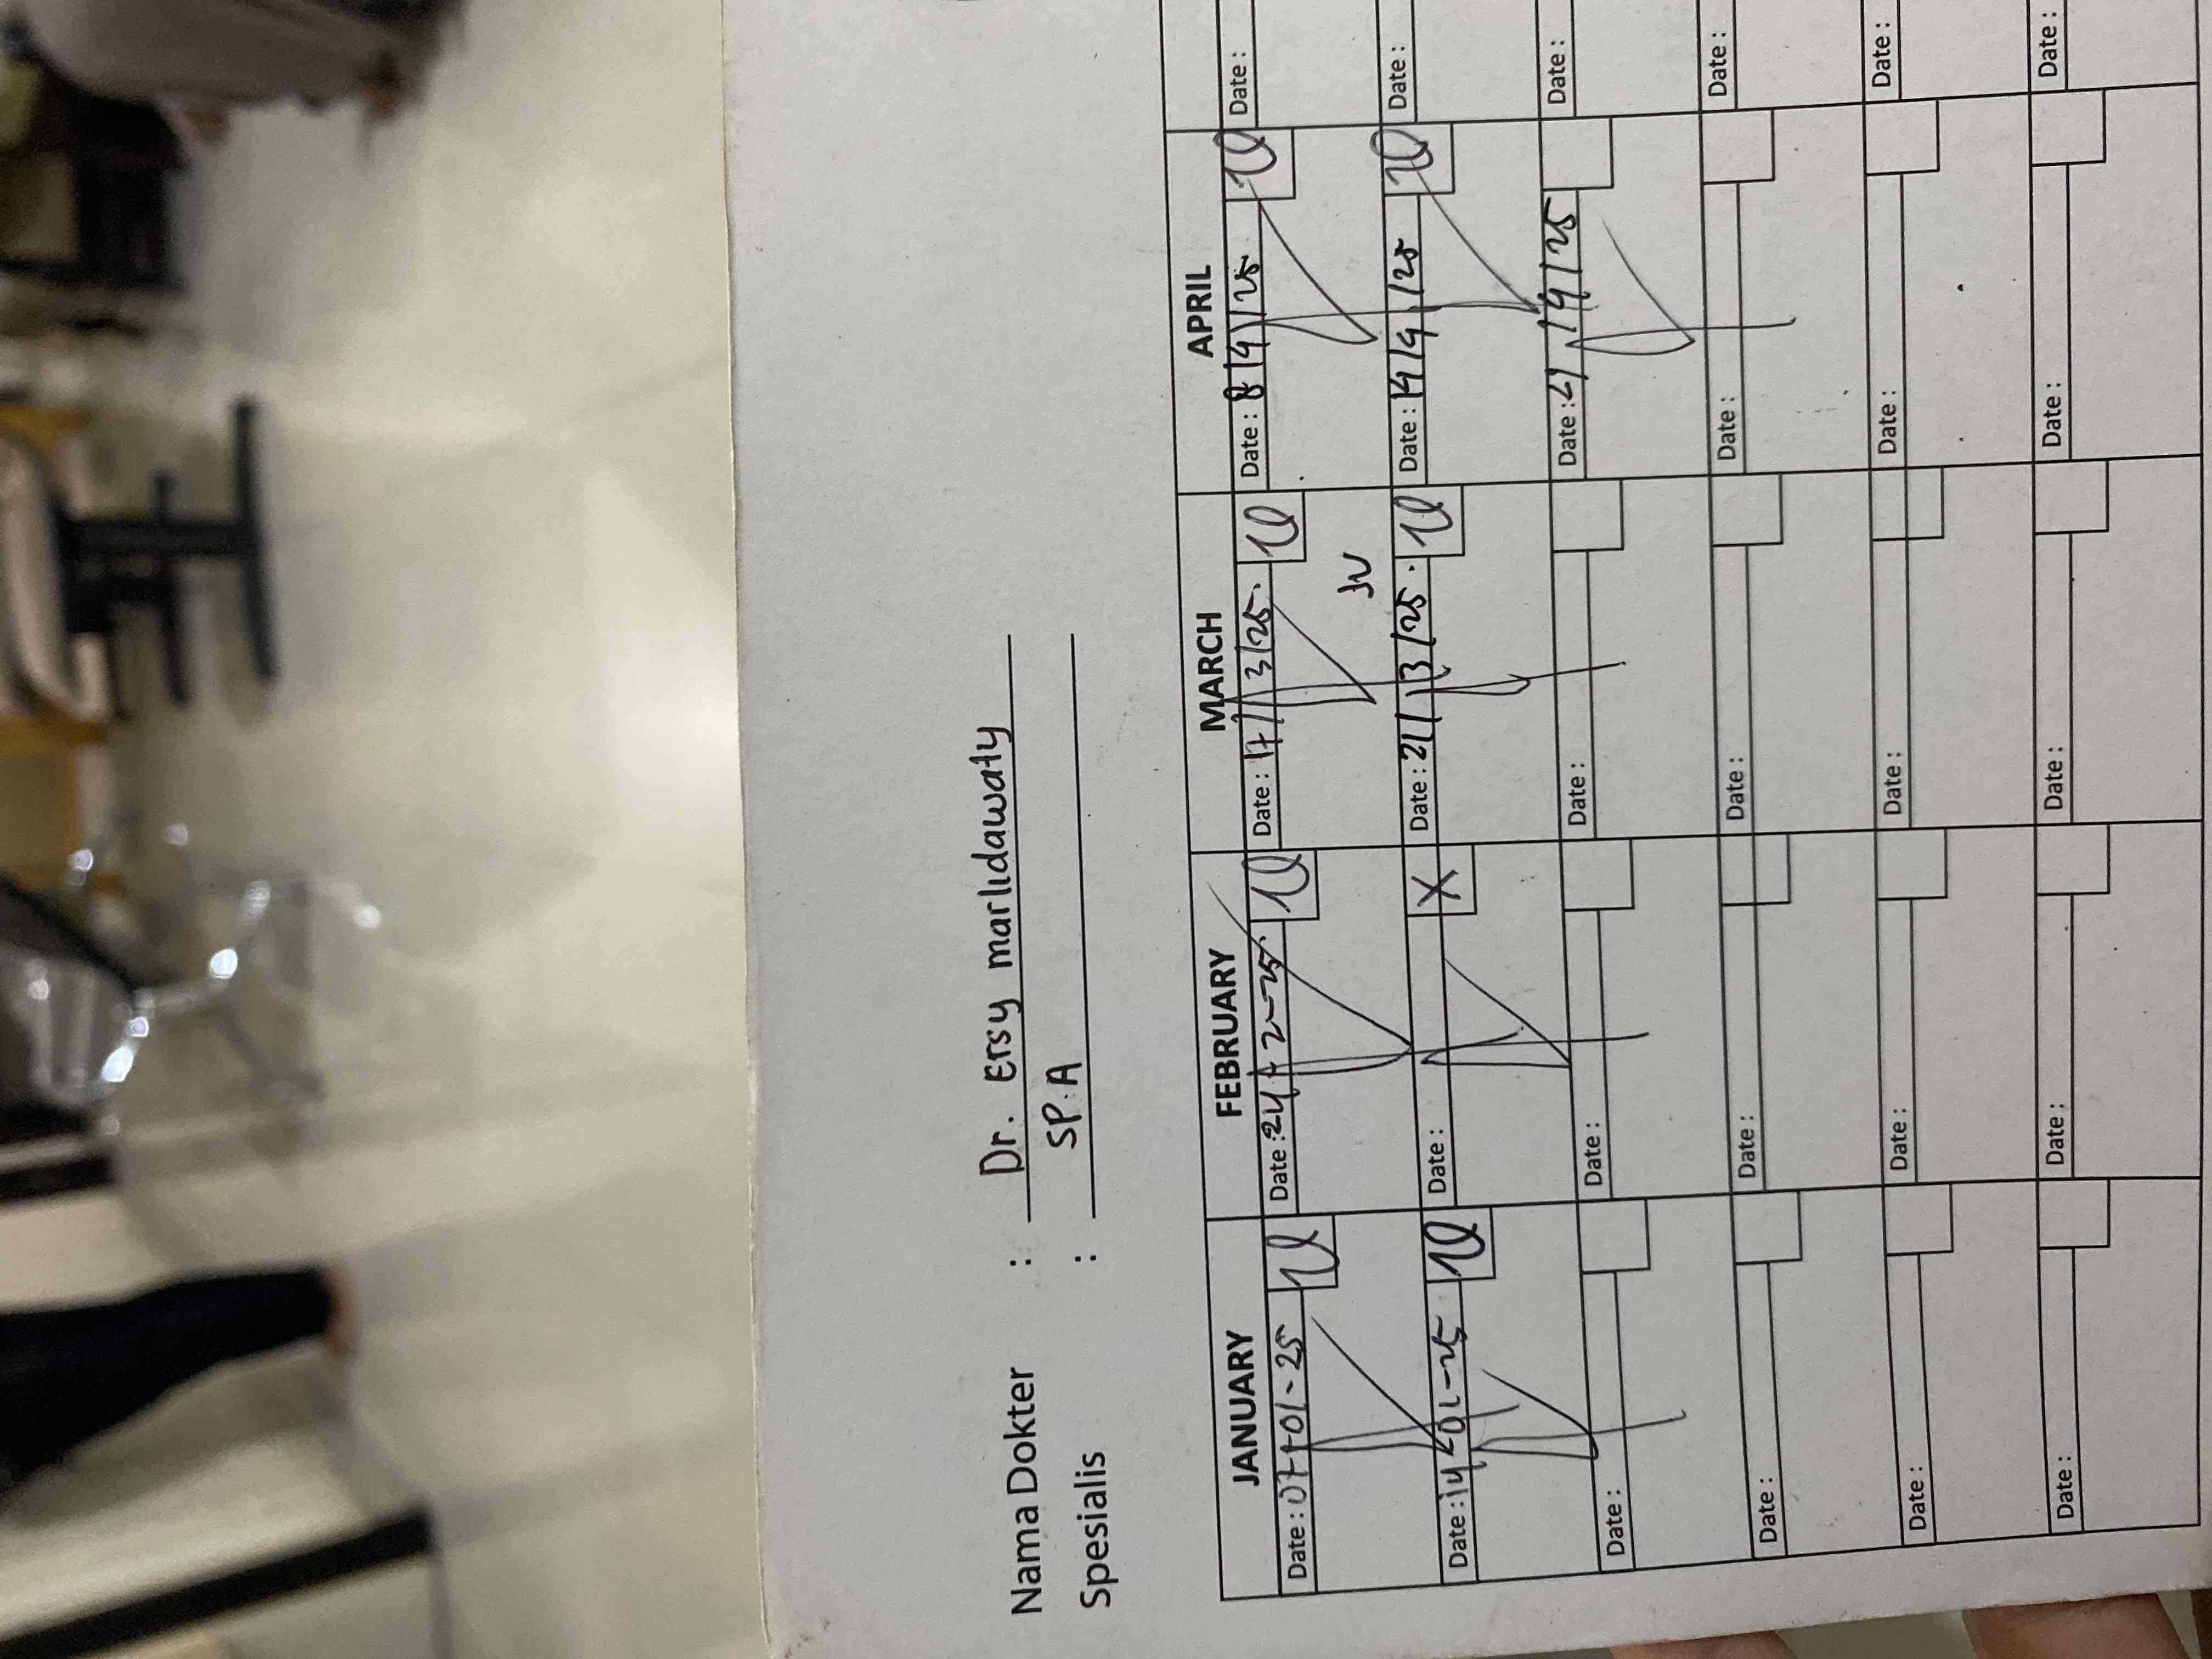 Nama Dokter : Dr. Ersy marlidawaty
Spesialis : SP.A
JANUARY FEBRUARY MARCH APRIL
Date : 07-01-25 Date : 24-2-25. Date : 17/3/25. Date : 8/4/25 Date :
JW
Date : 14-01-25 Date : X Date : 21/3/25. Date : 14/4/25 Date :
Date : Date : Date : Date : 21/4/25 Date :
Date : Date : Date : Date : Date :
Date : Date : Date : Date : Date :
Date : Date : Date : Date : Date :